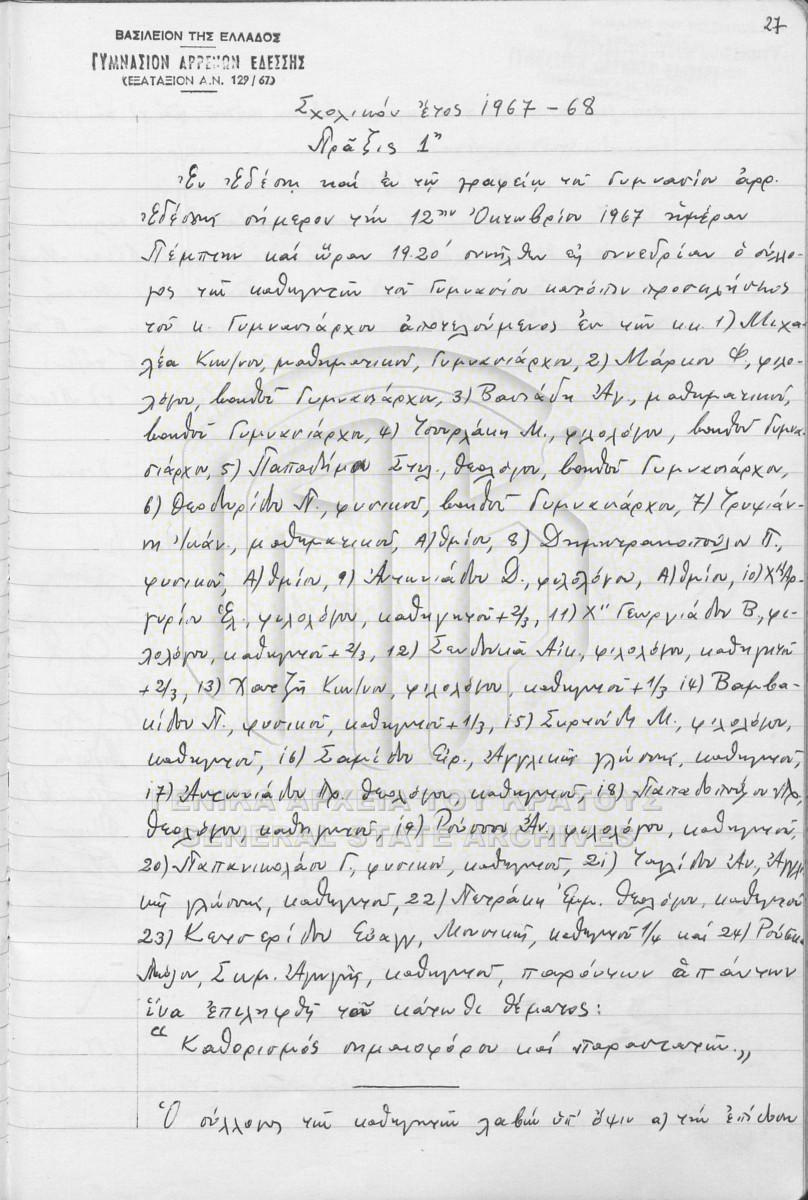 27
ΒΑΣΙΛΕΙΟΝ ΤΗΣ ΕΛΛΑΔΟΣ
ΓΥΜΝΑΣΙΟΝ ΑΡΡΕΝΩΝ ΕΔΕΣΣΗΣ
(ΕΞΑΤΑΞΙΟΝ Α.Ν. 129/67)
Σχολικόν ἔτος 1967-68
Πρᾶξις 1η
Ἐν Ἐδέσσῃ καί ἐν τῷ γραφείῳ τοῦ Γυμνασίου ἀρρ.
Ἐδέσσης σήμερον τήν 12ην Ὀκτωβρίου 1967 ἡμέραν
Πέμπτην καί ὥραν 19.20' συνῆλθεν εἰς συνεδρίαν ὁ σύλλο-
γος τῶν καθηγητῶν τοῦ Γυμνασίου κατόπιν προσκλήσεως
τοῦ κ. Γυμνασιάρχου ἀποτελούμενος ἐκ τῶν κ.κ. 1) Μιχα-
λέα Κων/νου, μαθηματικοῦ, Γυμνασιάρχου, 2) Μάρκου Φ, φιλο-
λόγου, βοηθοῦ Γυμνασιάρχου, 3) Βασιάδη Ἀγ., μαθηματικοῦ,
βοηθοῦ Γυμνασιάρχου, 4) Τσουρλάκη Μ., φιλολόγου, βοηθοῦ Γυμνα-
σιάρχου, 5) Παπαδήμα Στυλ., θεολόγου, βοηθοῦ Γυμνασιάρχου,
6) Θεοδωρίδου Π., φυσικοῦ, βοηθοῦ Γυμνασιάρχου, 7) Τρυφιάν-
νη Ἰωάν., μαθηματικοῦ, Α)θμίου, 8) Δημητρακοπούλου Γ.,
φυσικοῦ, Α)θμίου, 9) Ἀντωνιάδου Δ., φιλολόγου, Α)θμίου, 10) Χ"Ἀρ-
γυρίου Ἑλ., φιλολόγου, καθηγητοῦ +2/3, 11) Χ" Γεωργιάδου Β., φι-
λολόγου, καθηγητοῦ +2/3, 12) Σενδουκᾶ Αἰκ., φιλολόγου, καθηγητοῦ
+2/3, 13) Χατζῆ Κων/νου, φιλολόγου, καθηγητοῦ +1/3 14) Βαμβα-
κίδου Π., φυσικοῦ, καθηγητοῦ +1/3, 15) Μ., φιλολόγου,
καθηγητοῦ, 16) Σαμίδου Εἰρ., Ἀγγλικῆς γλώσσης, καθηγητοῦ,
17) Ἀντωνιάδου Πρ. θεολόγου, καθηγητοῦ, 18) Παπαδοπούλου
θεολόγου, καθηγητοῦ, 19) Ρούσσου Ἀν., φιλολόγου, καθηγητοῦ,
20) Παπανικολάου Γ., φυσικοῦ, καθηγητοῦ, 21) Ἀν., Ἀγγλι-
κῆς γλώσσης, καθηγητοῦ, 22) Πετράκη Ἐμμ. θεολόγου, καθηγητοῦ
23) Κεντσερίδου Εὐαγγ., Μουσικῆς, καθηγητοῦ 1/4 καί 24)
Σωμ. Ἀγωγῆς, καθηγητοῦ, παρόντων ἁπάντων
ἵνα ἐπιληφθῇ τοῦ κάτωθι θέματος:
"Καθορισμός σημαιοφόρου καί παραστατῶν."
Ὁ σύλλογος τῶν καθηγητῶν λαβών ὑπ' ὄψιν α) τήν ἐπίδοσιν
ΓΕΝΙΚΑ ΑΡΧΕΙΑ ΤΟΥ ΚΡΑΤΟΥΣ
GENERAL STATE ARCHIVES